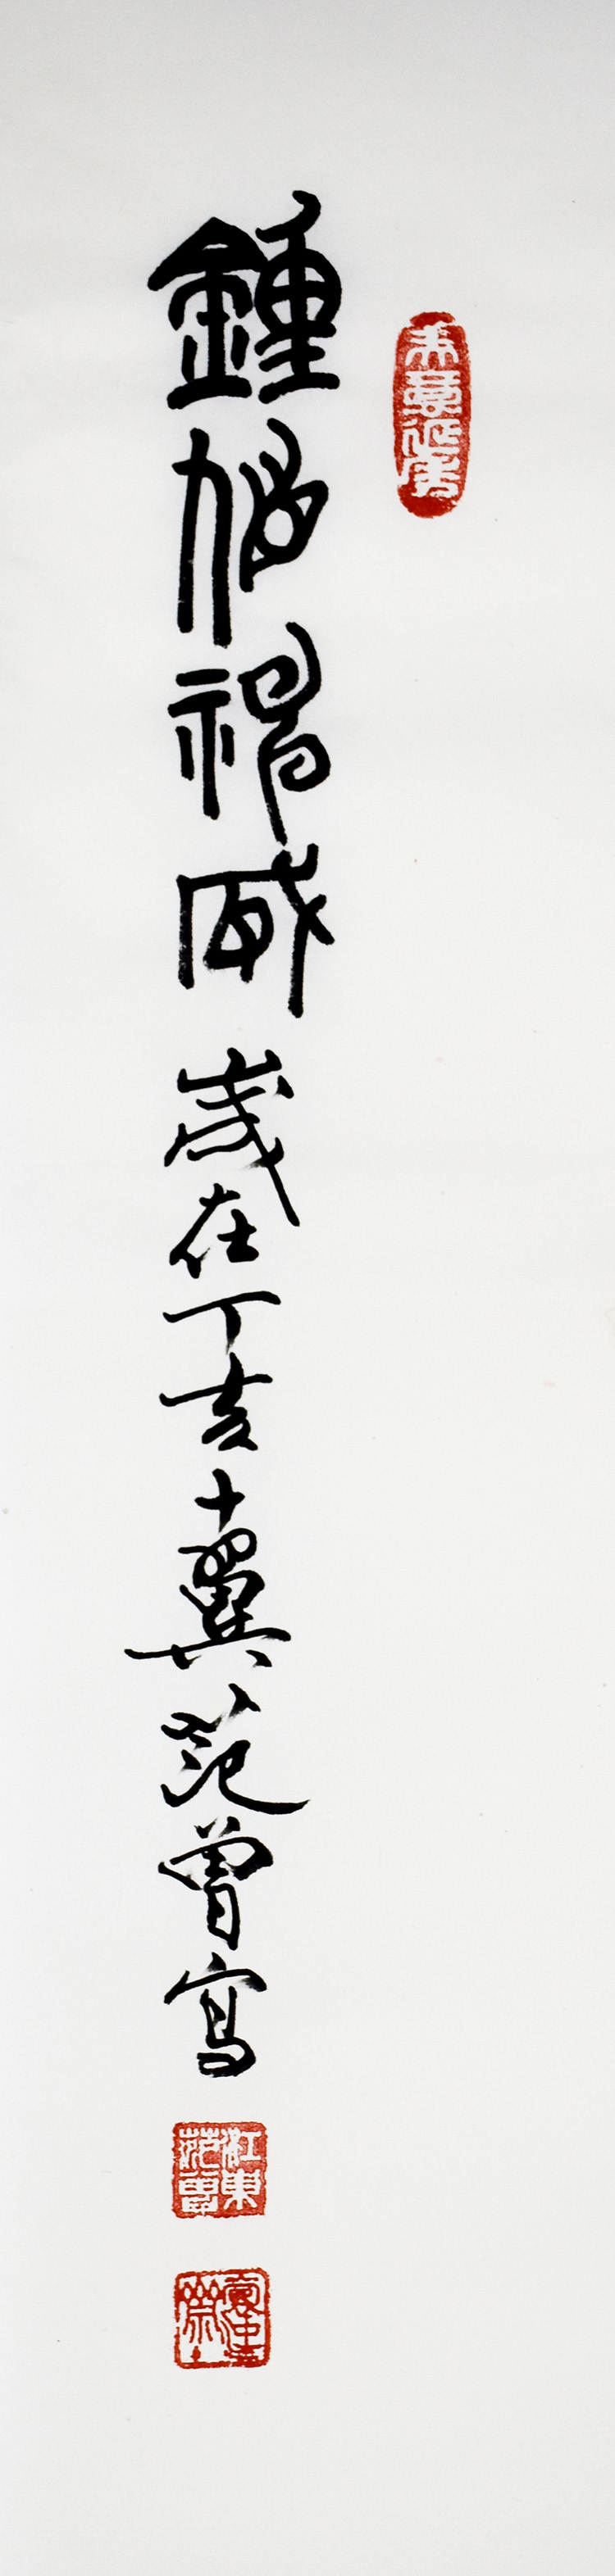 鍾馗神威
歲在丁亥十翼范曾寫
江東范曾